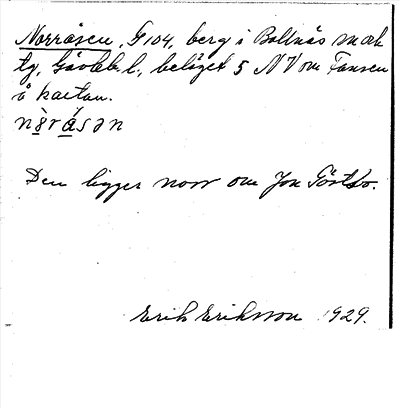 Norråsen, G 104, berg i Bollnäs sn och
tg, Gävleb. l., beläget 5 NV om Tansen
å kartan.
nȯråsən
Den ligger norr om Jon Görtsbo.
Erik Eriksson 1929.